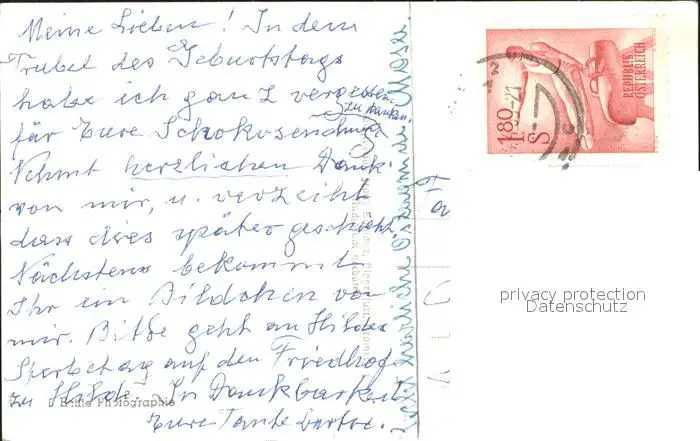 Meine Lieben! In dem
Trubel des Geburtstags
habe ich ganz vergessen
zu danken.
für Eure Schokosendung
Nehmt herzlichen Dank
von mir, u. verzeiht
dass dies später geschieht.
Nächstens bekommt
Ihr ein Bildchen von
mir. Bitte geht an Hildes
Sterbetag auf den Friedhof
zu Hilde. In Dankbarkeit
Eure Tante
Echte Photographie
REPUBLIK
ÖSTERREICH
1.80
S
privacy protection
Datenschutz